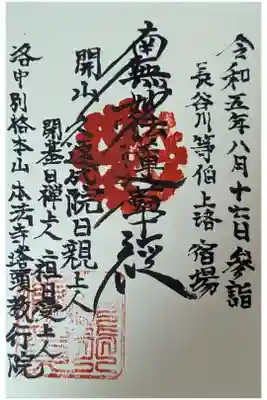 令和五年八月十七日参詣
長谷川等伯上洛宿場
南無妙法蓮華経
開山久遠成院日親上人
開基日禅上人 二祖日㝫上人
洛中別格本山本法寺塔頭教行院